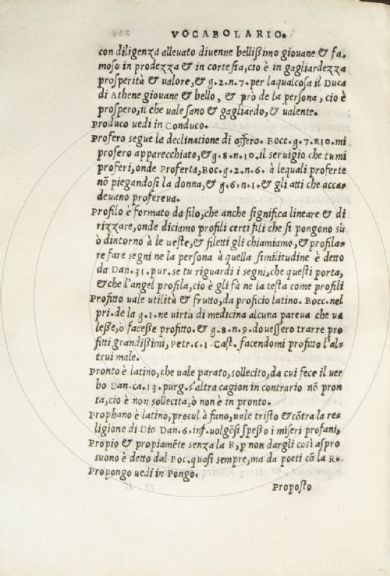 VOCABOLARIO.
con diligenza alleuato diuenne bellißimo giouane & fa-
moso in prodezza & in cortesia, cio è in gagliardezza
prosperità & ualore, & g.2.n.7. per laqualcosa il Duca
di Athene giouane & bello, & prò de la persona, cio è
prospero, il che uale sano & gagliardo, & ualente.
Produco uedi in Conduco.
Profero segue la declinatione di offero. Bocc. g.7.n10. mi
profero apparecchiato, & g.8.n.10. il seruigio che tu mi
proferi, onde Proferta, Boc. g.2.n.6. à lequali proferte
nõ piegandosi la donna, & g.6.n.1. & gli atti che acca-
deuano profereua.
Profilo è formato da filo, che anche significa lineare & di
rizzare, onde diciamo profili certi fili che si pongono su
ò dintorno à le ueste, & filetti gli chiamiamo, & profila-
re fare segni ne la persona à quella similitudine è detto
da Dan. 31. pur. se tu riguardi i segni, che questi porta,
& che l'angel profila, cio è gli fà ne la testa come profili
Profitto uale utilità & frutto, da proficio latino. Bocc. nel
pri. de la g.1. ne uirtù di medicina alcuna pareua che ua
leße, ò faceße profitto. & g.8.n.9. doueßero trarre pro
fitti grandißimi, Petr. c.1. Cast. facendomi profitto l'al-
trui male.
Pronto è latino, che uale parato, sollecito, da cui fece il uer
bo Dan. ca.13. purg. s'altra cagion in contrario nõ pron
ta, cio è non sollecita, ò non è in pronto.
Prophano è latino, procul à fano, uale tristo & cõtra la re-
ligione di Dio Dan. 6. inf. uolgõsi speßo i miseri profani,
Propio & propiamẽte senza la R, p non dargli così aspro
suono è detto dal Boc. quasi sempre, ma da poeti cõ la R.
Propongo uedi in Pongo.
Proposto